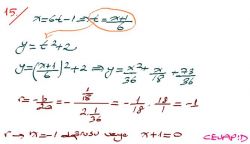 15/
x=6t-1 ⇒ t=\frac{x+1}{6}
y=t²+2
y=(\frac{x+1}{6})²+2 ⇒ y=\frac{x²}{36}+\frac{x}{18}+\frac{73}{36}
r=-\frac{b}{2a}=-\frac{\frac{1}{18}}{2\frac{1}{36}}=-\frac{1}{18}.\frac{18}{1}=-1
r→ x=-1 doğrusu veya x+1=0
CEVAP:D